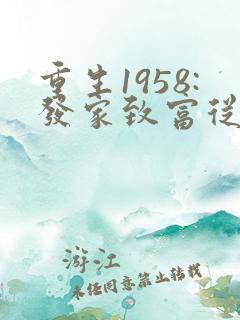 重生1958:
發家致富從
游江
未經同意禁止轉載